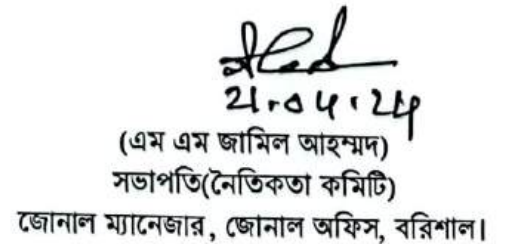 21.04.24
(এম এম জামিল আহম্মদ)
সভাপতি(নৈতিকতা কমিটি)
জোনাল ম্যানেজার, জোনাল অফিস, বরিশাল।